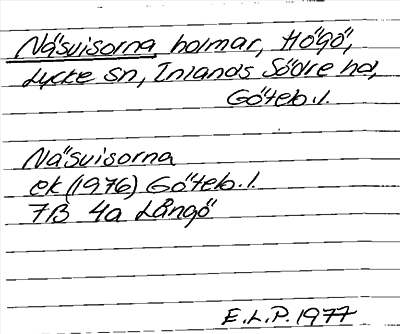 Näsvisorna, holmar, Högö,
Lycke sn, Inlands Södre hd,
Göteb. l.
Näsvisorna
ek (1976) Göteb. l.
7B 4a Långö
E.L.P. 1977